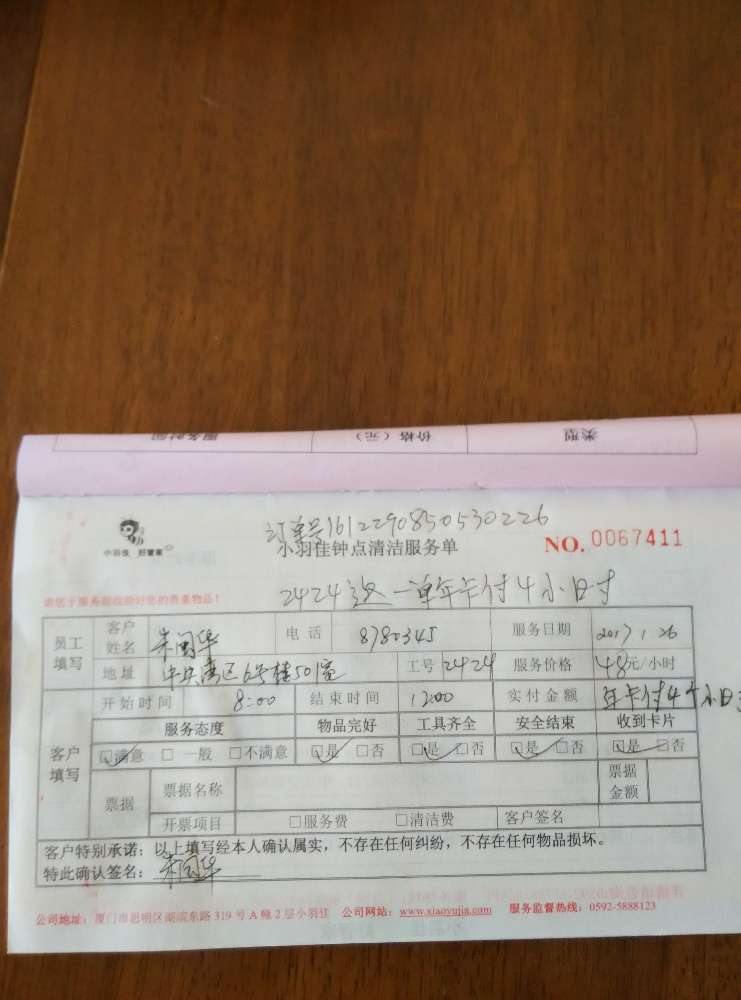 服务时间 价格（元） 类型
订单号1612290850530226
小羽佳 好管家
小羽佳钟点清洁服务单 NO. 0067411
请您于服务前收拾好您的贵重物品！
2424这一单年卡付4小时
员工填写 客户姓名 朱闽华 电话 8780345 服务日期 2017.1.26
地址 中央湾区6号楼501室 工号 2424 服务价格 48元/小时
开始时间 8:00 结束时间 12:00 实付金额 年卡付4个小时
客户填写 服务态度 物品完好 工具齐全 安全结束 收到卡片
☑满意 □一般 □不满意 ☑是 □否 ☑是 □否 ☑是 □否 ☑是 □否
票据 票据名称 票据金额
开票项目 □服务费 □清洁费 客户签名
客户特别承诺：以上填写经本人确认属实，不存在任何纠纷，不存在任何物品损坏。
特此确认签名：朱闽华
公司地址：厦门市思明区湖滨东路319号A幢2层小羽佳 公司网站：www.xiaoyujia.com 服务监督热线：0592-5888123